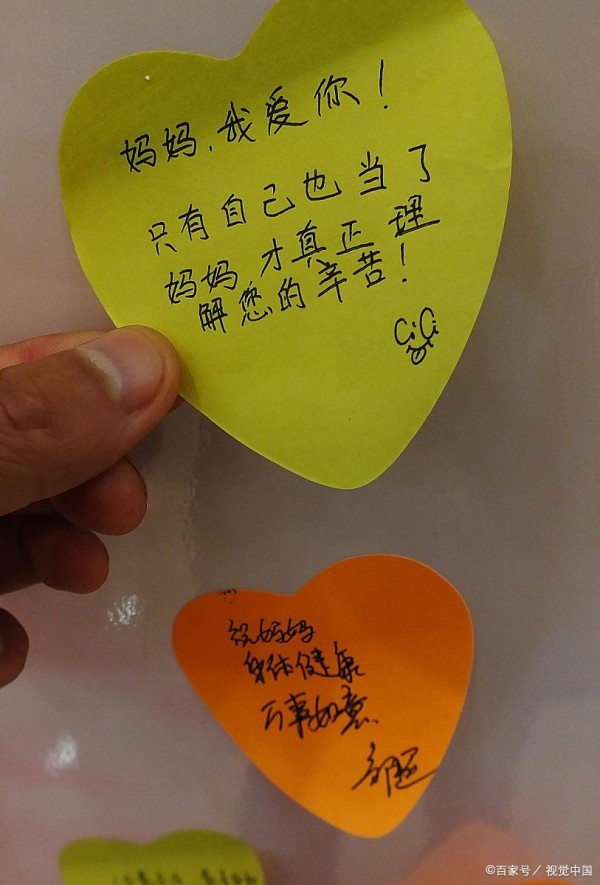 妈妈，我爱你！
只有自己也当了
妈妈，才真正理
解您的辛苦！
CiCi
祝妈妈
身体健康
万事如意
©百家号／视觉中国